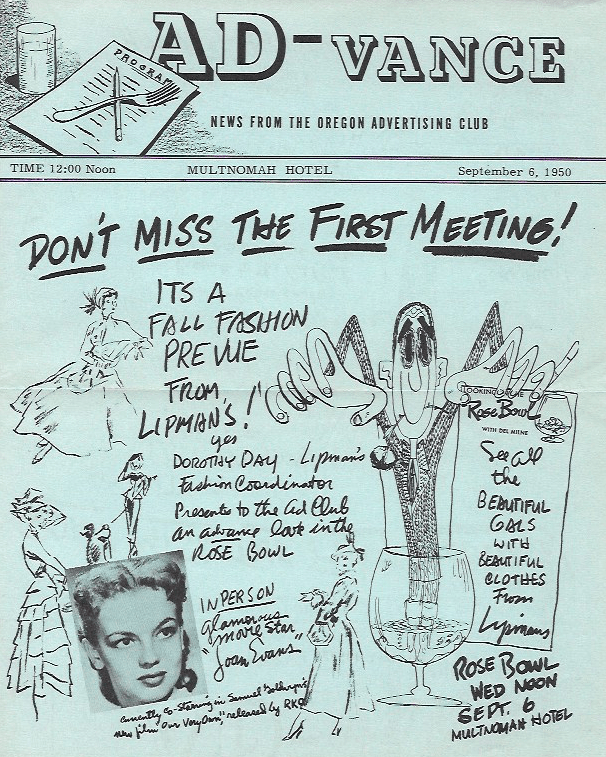 PROGRAM
AD-VANCE
NEWS FROM THE OREGON ADVERTISING CLUB
TIME 12:00 Noon MULTNOMAH HOTEL September 6, 1950
DON'T MISS THE FIRST MEETING!
ITS A
FALL FASHION
PREVUE
FROM
LIPMAN'S!
yes
DOROTHY DAY - Lipman's
Fashion Coordinator
Presents to the Ad Club
an advance look in the
ROSE BOWL
IN PERSON
glamorous
movie star
"Joan Evans"
currently co-starring in Samuel Goldwyn's
new film "Our Very Own," released by RKO
LOOKING IN THE
ROSE BOWL
WITH DEL MILNE
See all
the
BEAUTIFUL
GALS
WITH
BEAUTIFUL
CLOTHES
From
Lipmans
ROSE BOWL
WED NOON
SEPT. 6
MULTNOMAH HOTEL